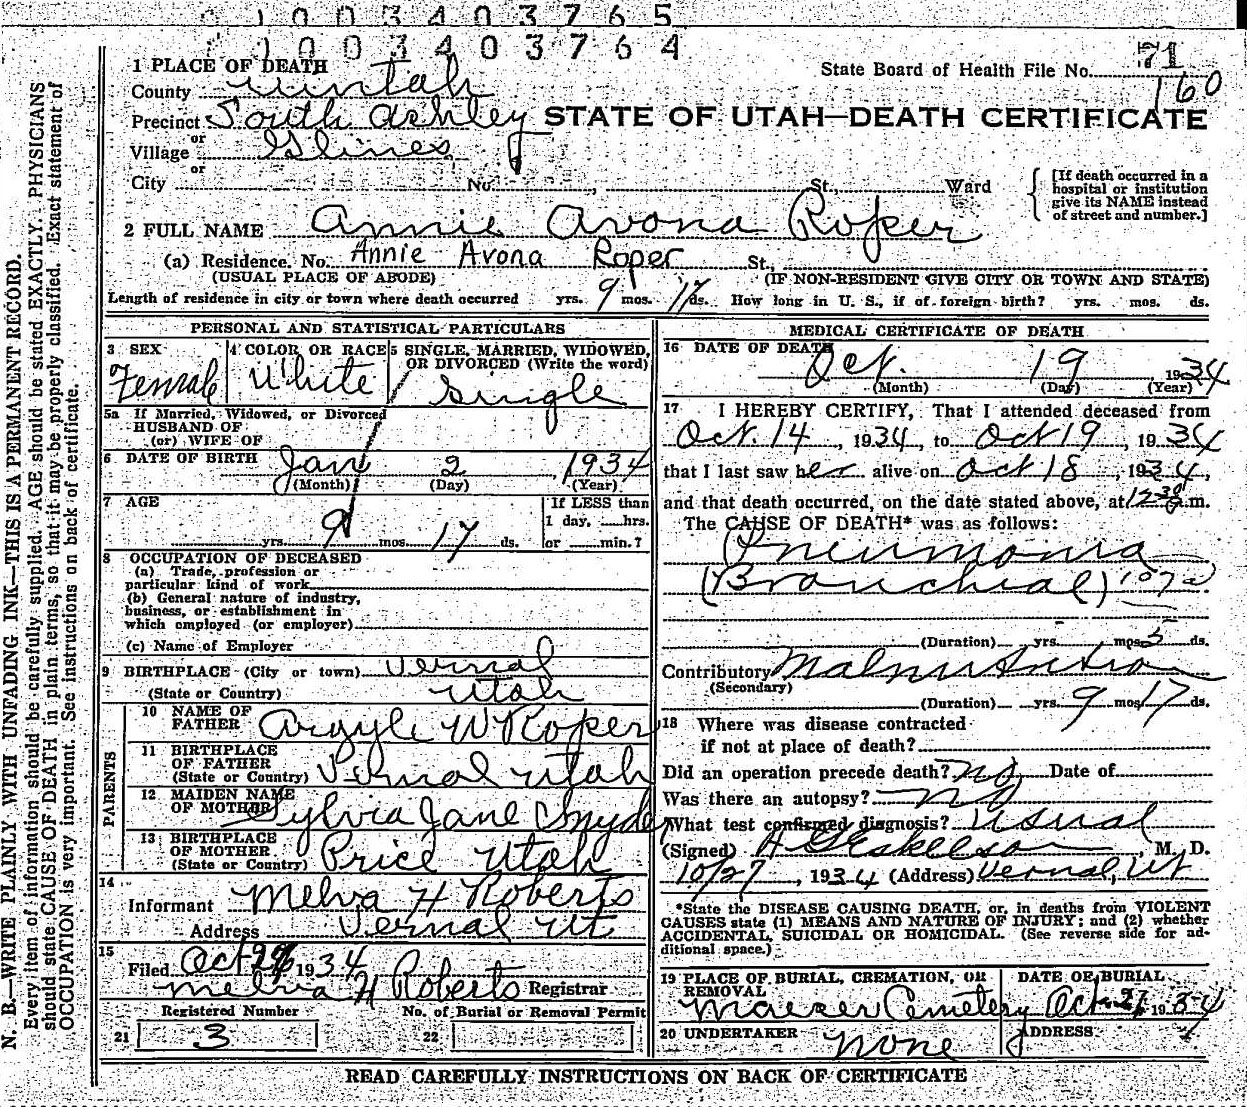 1 0 0 3 4 0 3 7 6 5
1 0 0 3 4 0 3 7 6 4
71
State Board of Health File No. 160
1 PLACE OF DEATH
County Uintah
Precinct South Ashley
STATE OF UTAH—DEATH CERTIFICATE
or
Village Glines
or
City No. , St., Ward
[If death occurred in a hospital or institution give its NAME instead of street and number.]
2 FULL NAME Annie Avona Roper
(a) Residence. No. Annie Avona Roper St.,
(USUAL PLACE OF ABODE) (IF NON-RESIDENT GIVE CITY OR TOWN AND STATE)
Length of residence in city or town where death occurred yrs. 9 mos. 17 ds. How long in U. S., if of foreign birth? yrs. mos. ds.
PERSONAL AND STATISTICAL PARTICULARS
3 SEX Female
4 COLOR OR RACE White
5 SINGLE, MARRIED, WIDOWED, OR DIVORCED (Write the word) Single
5a If Married, Widowed, or Divorced
HUSBAND OF
(or) WIFE OF
6 DATE OF BIRTH Jan 2, 1934
(Month) (Day) (Year)
7 AGE
yrs. 9 mos. 17 ds.
If LESS than
1 day, hrs.
or min.?
8 OCCUPATION OF DECEASED
(a) Trade, profession or
particular kind of work
(b) General nature of industry,
business, or establishment in
which employed (or employer)
(c) Name of Employer
9 BIRTHPLACE (City or town) Vernal
(State or Country) Utah
PARENTS
10 NAME OF FATHER Argyle W Roper
11 BIRTHPLACE OF FATHER (State or Country) Vernal Utah
12 MAIDEN NAME OF MOTHER Sylvia Jane Snyder
13 BIRTHPLACE OF MOTHER (State or Country) Price Utah
14
Informant Melva H Roberts
Address Vernal Ut
15
Filed Oct 1934
Melva H Roberts Registrar
Registered Number No. of Burial or Removal Permit
21 3 22
MEDICAL CERTIFICATE OF DEATH
16 DATE OF DEATH Oct. 19 1934
(Month) (Day) (Year)
17 I HEREBY CERTIFY, That I attended deceased from
Oct. 14, 1934, to Oct 19, 1934
that I last saw her alive on Oct 18, 1934,
and that death occurred, on the date stated above, at 12 m.
The CAUSE OF DEATH* was as follows:
Pneumonia
(Bronchial) 107
(Duration) yrs. mos. 5 ds.
Contributory Malnutrition
(Secondary)
(Duration) yrs. 9 mos. 17 ds.
18 Where was disease contracted
if not at place of death?
Did an operation precede death? No Date of
Was there an autopsy? No
What test confirmed diagnosis? Usual
(Signed) , M. D.
10/27, 1934 (Address) Vernal, Ut
*State the DISEASE CAUSING DEATH, or, in deaths from VIOLENT
CAUSES state (1) MEANS AND NATURE OF INJURY; and (2) whether
ACCIDENTAL, SUICIDAL OR HOMICIDAL. (See reverse side for ad-
ditional space.)
19 PLACE OF BURIAL, CREMATION, OR REMOVAL Maeser Cemetery
DATE OF BURIAL Oct. 21, 1934
20 UNDERTAKER none
ADDRESS
READ CAREFULLY INSTRUCTIONS ON BACK OF CERTIFICATE
N. B.—WRITE PLAINLY WITH UNFADING INK—THIS IS A PERMANENT RECORD.
Every item of information should be carefully supplied. AGE should be stated EXACTLY. PHYSICIANS
should state CAUSE OF DEATH in plain terms, so that it may be properly classified. Exact statement of
OCCUPATION is very important. See instructions on back of certificate.